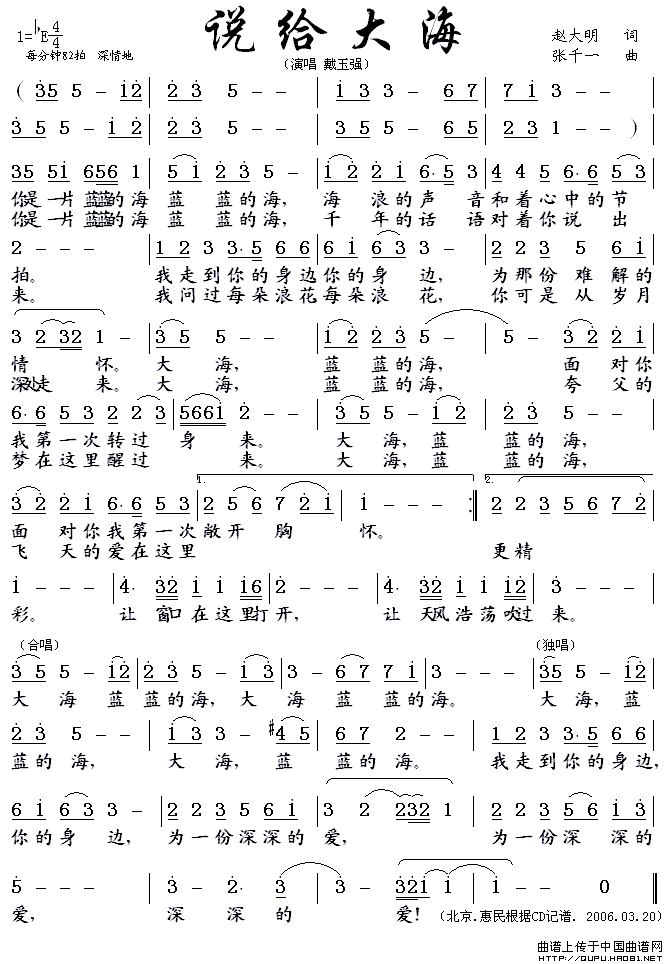 说给大海
1=♭E 4/4
每分钟82拍 深情地
(演唱 戴玉强)
赵大明 词
张千一 曲
( 35 5 - 12 | 2 3 5 - - | 1 3 3 - - 6 7 | 7 1 3 - -
3 5 5 - 1 2 | 2 3 5 - - | 3 5 5 - 6 5 | 2 3 1 - - )
35 51 656 1 | 5 1 2 3 5 - | 1 2 2 1 6·5 3 | 4 4 5 6·6 5 3
你是一片蓝蓝的海 蓝 蓝的海, 海 浪的声 音和着心中的节
你是一片蓝蓝的海 蓝 蓝的海, 千 年的话 语对着你说 出
2 - - - | 1 2 2 3 3·5 6 6 | 6 1 6 3 3 - | 2 2 3 5 6 1
拍。 我走到你的身边你的身 边, 为那份 难解的
来。 我问过每朵浪花每朵浪 花, 你可是 从 岁月
3 2 232 1 - | 3 5 5 - - | 1 2 2 3 5 - | 5 - - 3 2 2 1
情 怀。 大 海, 蓝 蓝的海, 面 对你
深处走 来。 大 海, 蓝 蓝的海, 夸 父的
6·6 5 3 2 2 3 | 5661 2 - - | 3 5 5 - 1 2 | 2 3 5 - -
我第一次转过 身 来。 大 海, 蓝 蓝的海,
梦在这里醒过 来。 大 海, 蓝 蓝的海,
3 2 2 1 6·6 5 3 | 1. 2 5 6 7 2 1 | 1 - - - :| 2. 2 2 3 5 6 7 2
面 对你我第一次敞开 胸 怀。
飞 天的爱在这里 更精
1 - - - | 4· 32 1 1 16 | 2 - - - | 4· 32 5 1 12 | 3 - - -
彩。 让 窗口在这里打开, 让 天风浩荡吹过 来。
(合唱) (独唱)
3 5 5 - 12 | 2 3 5 - 1 3 | 3 - 6 7 7 1 | 3 - - - | 35 5 - 12
大 海 蓝 蓝的海, 大 海 蓝 蓝的海。 大 海, 蓝
2 3 5 - - | 1 3 3 - #4 5 | 6 7 2 - - | 2 3 3·5 6 6
蓝的海, 大 海, 蓝 蓝的海。 我走到你的身边,
6 1 6 3 3 - | 2 2 3 5 6 1 | 3 2 232 1 | 2 2 3 5 6 1
你的身 边, 为一份深深的 爱, 为一份深 深的
5 - - - | 3 - 2· 2 | 3 - - - | 321 1 1 | 1 - - 0 ‖
爱, 深 深的 爱!
(北京.惠民根据CD记谱. 2006.03.20)
曲谱上传于中国曲谱网
HTTP://QUPU.HAO81.NET